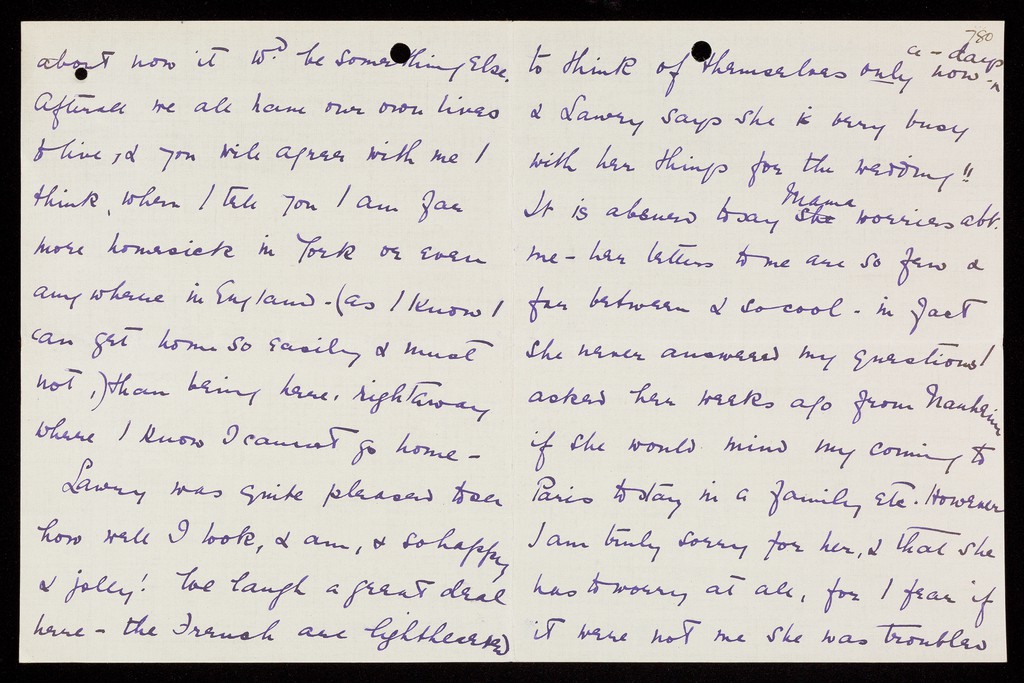 780
about now it wd. be something else.
Afterall we all have our own lives
to live, & you will agree with me I
think, when I tell you I am far
more homesick in York or even
anywhere in England - (as I know I
can get home so easily & must
not,) than being here, rightaway
where I know I cannot go home -
Lawry was quite pleased to see
how well I look, & am, & so happy
& jolly! We laugh a great deal
here - the French are lighthearted
to think of themselves only now-a-days
& Lawry says she is very busy
with her things for the wedding!!
It is absurd to say she Mama worries abt.
me - her letters to me are so few &
far between & so cool - in fact
she never answered my questions I
asked her weeks ago from Nauheim
if she would mind my coming to
Paris to stay in a family etc. However
I am truly sorry for her, & that she
has to worry at all, for I fear if
it were not me she was troubled